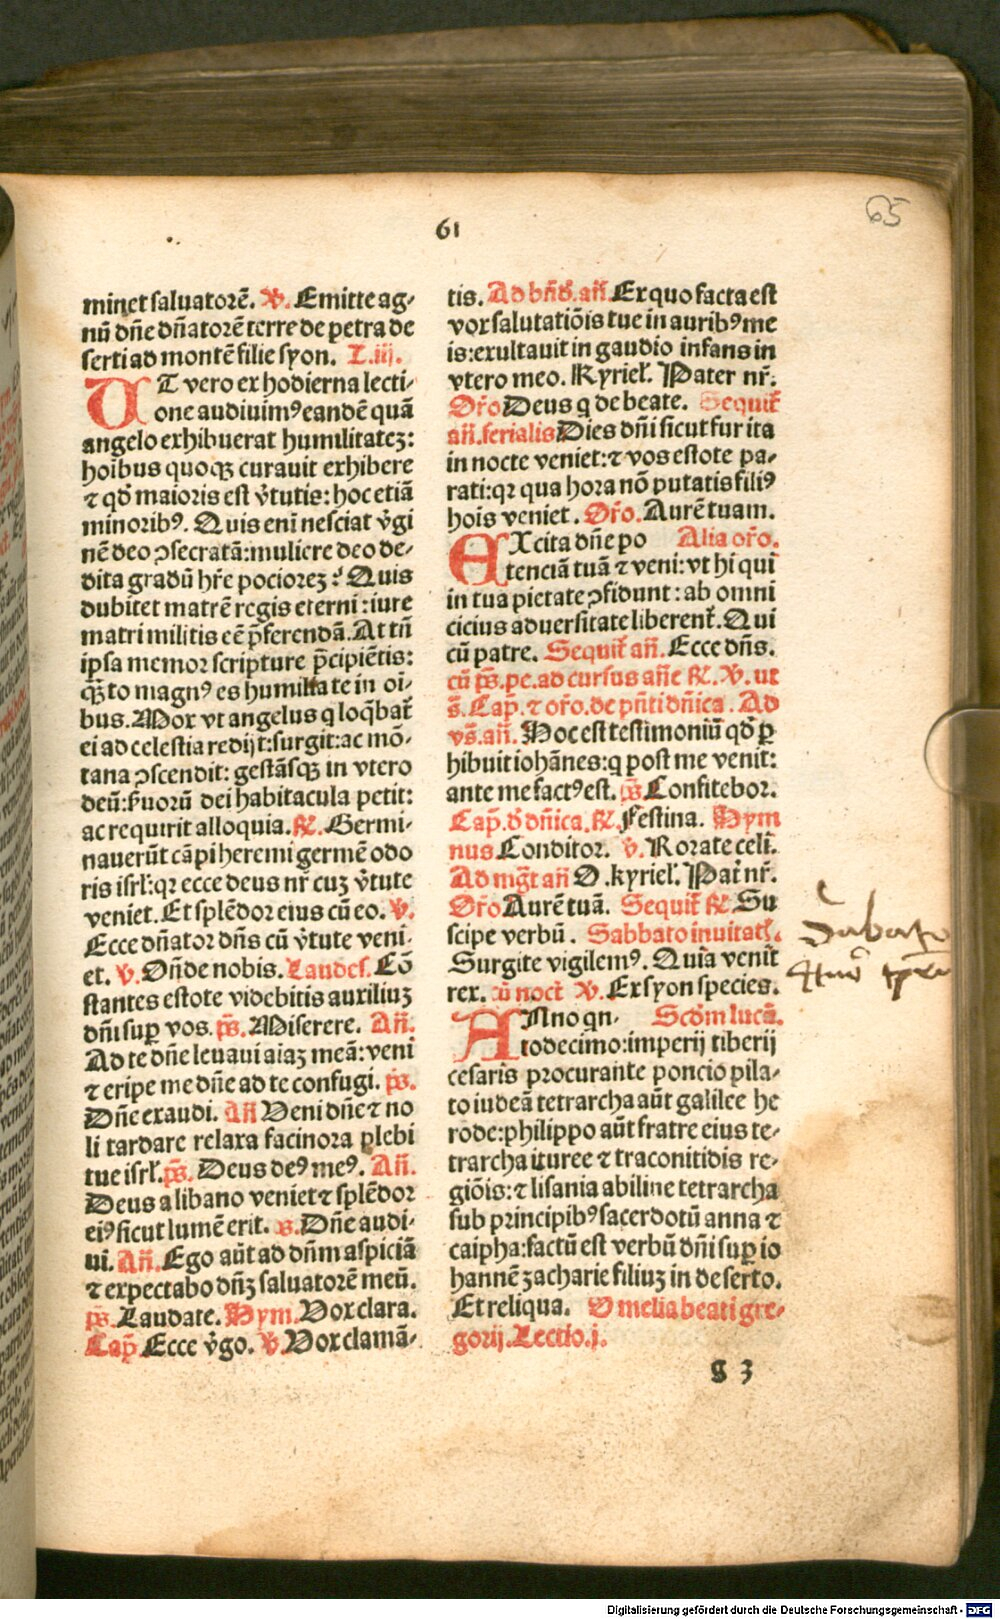 61
65
minet saluatorē. ℣. Emitte ag-
nū dñe dñatorē terre de petra de
serti ad montē filie syon. L.iij.
UT vero ex hodierna lecti-
one audiuimꝰ eandē quā
angelo exhibuerat humilitatez:
hoībus quoqꝫ curauit exhibere
⁊ qđ maioris est v̓tutis: hoc etiā
minoribꝰ. Quis enī nesciat v̓gi
nē deo ꝯsecratā: muliere deo de-
dita gradū hr̄e pociorez: Quis
dubitet matrē regis eterni: iure
matri militis eē p̄ferendā. At tn̄
ipsa memor scripture p̄cipiētis:
qꝫto magnꝰ es humilia te in oī-
bus. Mox vt angelus q loq̄bat᷑
ei ad celestia redijt: surgit: ac mō-
tana ꝯscendit: gestāsqꝫ in vtero
deū: ẜuorū dei habitacula petit:
ac requirit alloquia. ℟. Germi-
nauerūt cāpi heremi germē odo
ris isrl̓: qꝛ ecce deus nr̄ cuꝫ v̓tute
veniet. Et splēdor eius cū eo. ℣.
Ecce dñator dñs cū v̓tute veni-
et. ℣. Oñde nobis. Laudes. Cō
stantes estote videbitis auxiliuꝫ
dñi suꝑ vos. p̄s. Miserere. Añ.
Ad te dñe leuaui aiaꝫ meā: veni
⁊ eripe me dñe ad te confugi. p̄s.
Dñe exaudi. Añ Veni dñe ⁊ no
li tardare relaxa facinora plebi
tue isrl̓. p̄s. Deus deꝰ meꝰ. Añ.
Deus a libano veniet ⁊ splēdor
eiꝰ sicut lumē erit. p̄s. Dñe audi-
ui. Añ. Ego aūt ad dñm aspiciā
⁊ expectabo dñꝫ saluatorē meū.
p̄s. Laudate. Hym. Vox clara.
Cap̄ Ecce v̓go. ℣. Vox clamā-
tis. Ad bn̄d̓. añ. Ex quo facta est
vox salutatiōis tue in auribꝰ me
is: exultauit in gaudio infans in
vtero meo. Kyriel̓. Pater nr̄.
Or̄o Deus q de beate. Sequit᷑
añ. ferialis Dies dñi sicut fur ita
in nocte veniet: ⁊ vos estote pa-
rati: qꝛ qua hora nō putatis filiꝰ
hoīs veniet. Or̄o. Aurē tuam.
EXcita dñe po Alia or̄o.
tenciā tuā ⁊ veni: vt hi qui
in tua pietate ꝯfidunt: ab omni
cicius aduersitate liberent᷑. Qui
cū patre. Sequit᷑ añ. Ecce dñs.
cū p̄s. pe. ad cursus añe ℟. ℣. ut
s̄. Cap̄. ⁊ or̄o. de pn̄ti dñica. Ad
vs̄. añ. Hoc est testimoniū qđ ꝑ
hibuit iohānes: q post me venit:
ante me factꝰ est. p̄s Confitebor.
Cap̄. d̓ dñica. ℟. Festina. Hym
nus Conditor. ℣. Rorate celi.
Ad mḡt añ O. kyriel̓. Pat᷑ nr̄.
Or̄o Aurē tuā. Sequit᷑ ℟ Su
scipe verbū. Sabbato inuitat̓.
Surgite vigilemꝰ. Quia veniet
rex. ū noct̓ ℣. Ex syon species.
ANno qn- Scd̓m lucā.
todecimo: imperij tiberij
cesaris procurante poncio pila-
to iudeā tetrarcha aūt galilee he
rode: philippo aūt fratre eius te-
trarcha ituree ⁊ traconitidis re-
giōis: ⁊ lisania abiline tetrarcha
sub principibꝰ sacerdotū anna ⁊
caipha: factū est verbū dñi suꝑ io
hannē zacharie filiuꝫ in deserto.
Et reliqua. Omelia beati gre-
gorij. Lectio.j.
Sabato
g 3
Digitalisierung gefördert durch die Deutsche Forschungsgemeinschaft - DFG